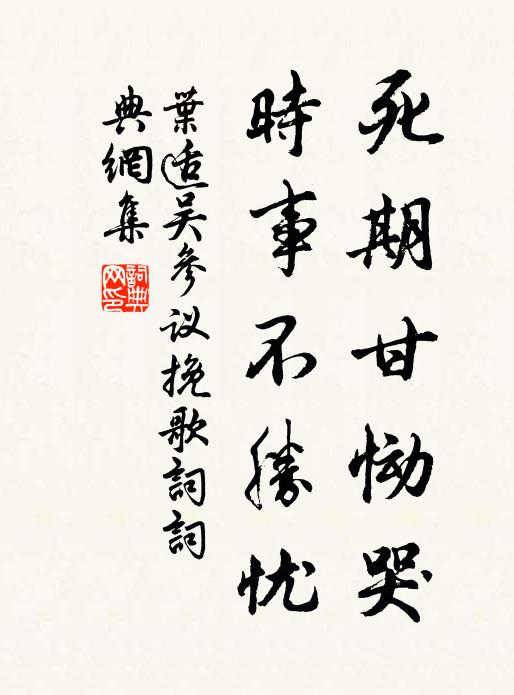 死期甘恸哭
時事不勝忧
葉适吴參议挽歌詞詞
典網集
詞典網印